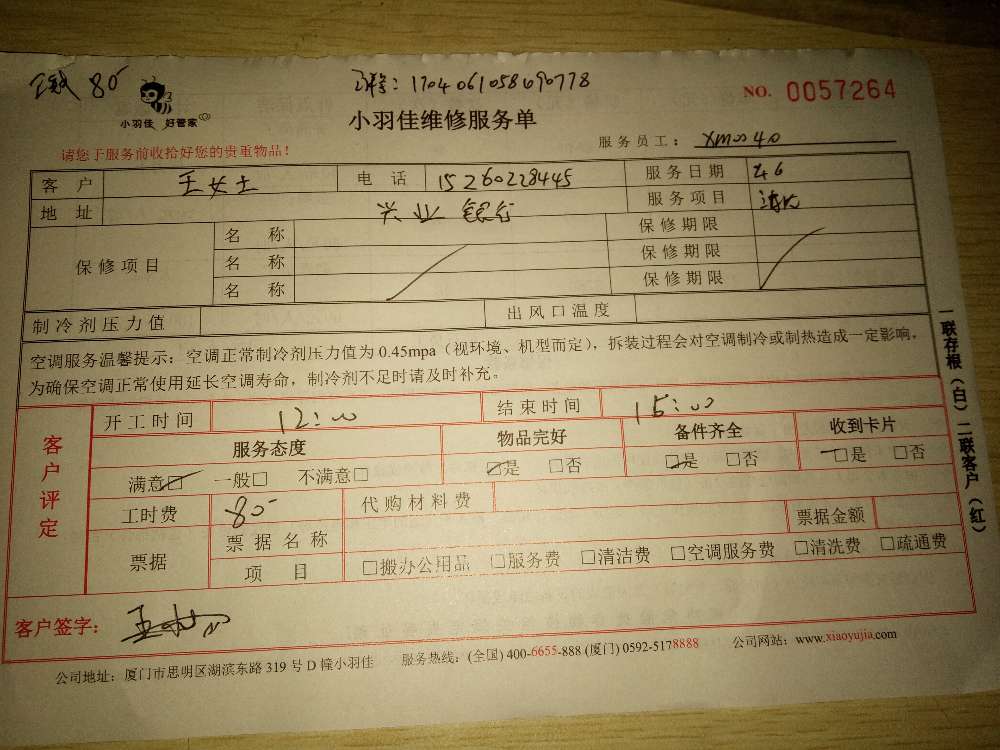 80
1704061058690778
NO. 0057264
小羽佳 好管家
小羽佳维修服务单
服务员工： XM0040
请您于服务前收拾好您的贵重物品！
客 户 王女士 电 话 15260228445 服务日期 4.6
地 址 兴业银行 服务项目
保修项目 名 称 保修期限
名 称 保修期限
名 称 保修期限
制冷剂压力值 出风口温度
空调服务温馨提示：空调正常制冷剂压力值为0.45mpa（视环境、机型而定），拆装过程会对空调制冷或制热造成一定影响，
为确保空调正常使用延长空调寿命，制冷剂不足时请及时补充。
一联存根（白）二联客户（红）
客户评定
开工时间 12:00 结束时间 15:00
服务态度 物品完好 备件齐全 收到卡片
满意□ 一般□ 不满意□ □是 □否 □是 □否 □是 □否
工时费 80 代购材料费
票据 票据名称 票据金额
项 目 □搬办公用品 □服务费 □清洁费 □空调服务费 □清洗费 □疏通费
客户签字：
公司地址：厦门市思明区湖滨东路319号D幢小羽佳 服务热线：(全国) 400-6655-888 (厦门) 0592-5178888 公司网站：www.xiaoyujia.com